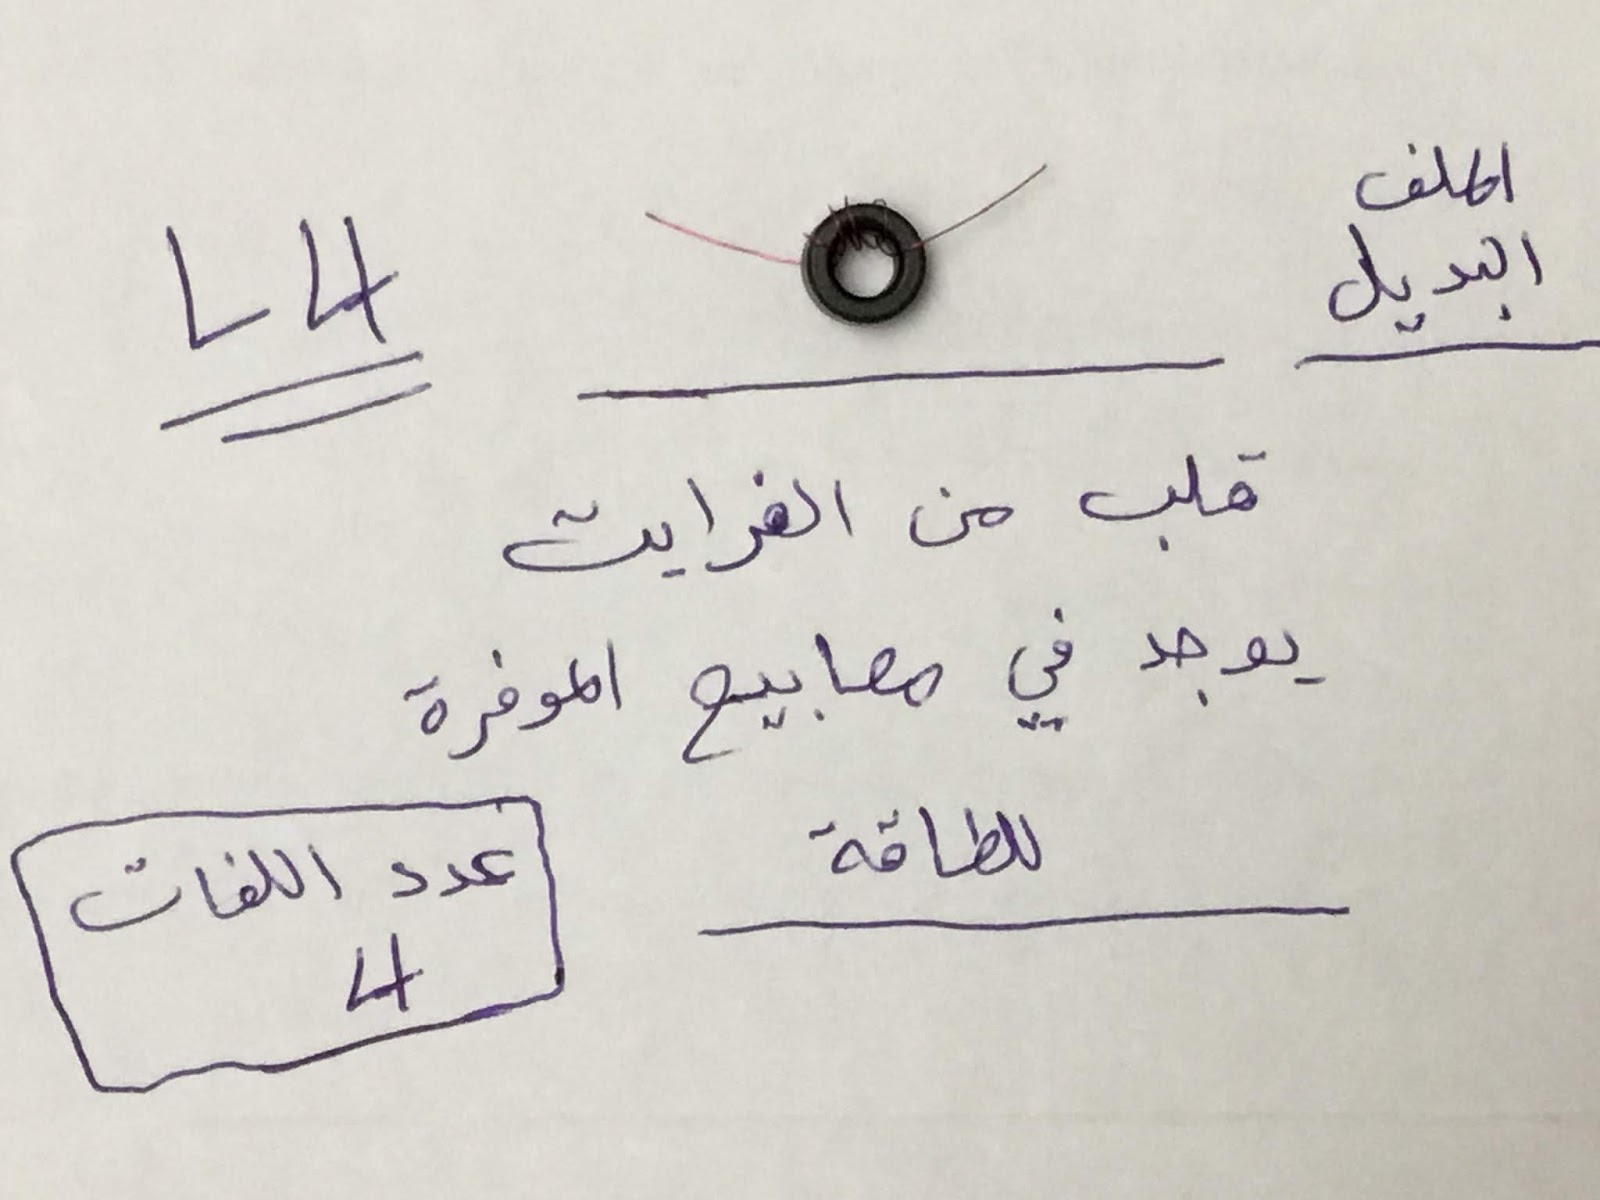 الملف
البديل
L4
قلب من الفرايت
يوجد في مصابيح الموفرة
للطاقة
عدد اللفات
4